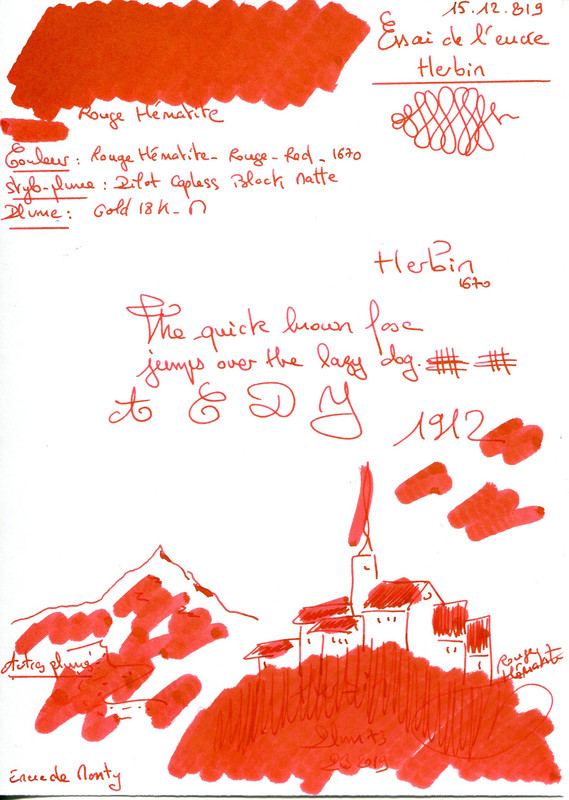 15.12.819
Essai de l'encre
Herbin
Rouge Hématite
Couleur : Rouge Hématite - Rouge - Red - 1670
Stylo-plume : Pilot Capless Black Matte
Plume : Gold 18K - M
Herbin
1670
The quick brown fox
jumps over the lazy dog.
A E D Y
1912
Autres plumes
Rouge
Hématite
Herbin
Encre de Monty